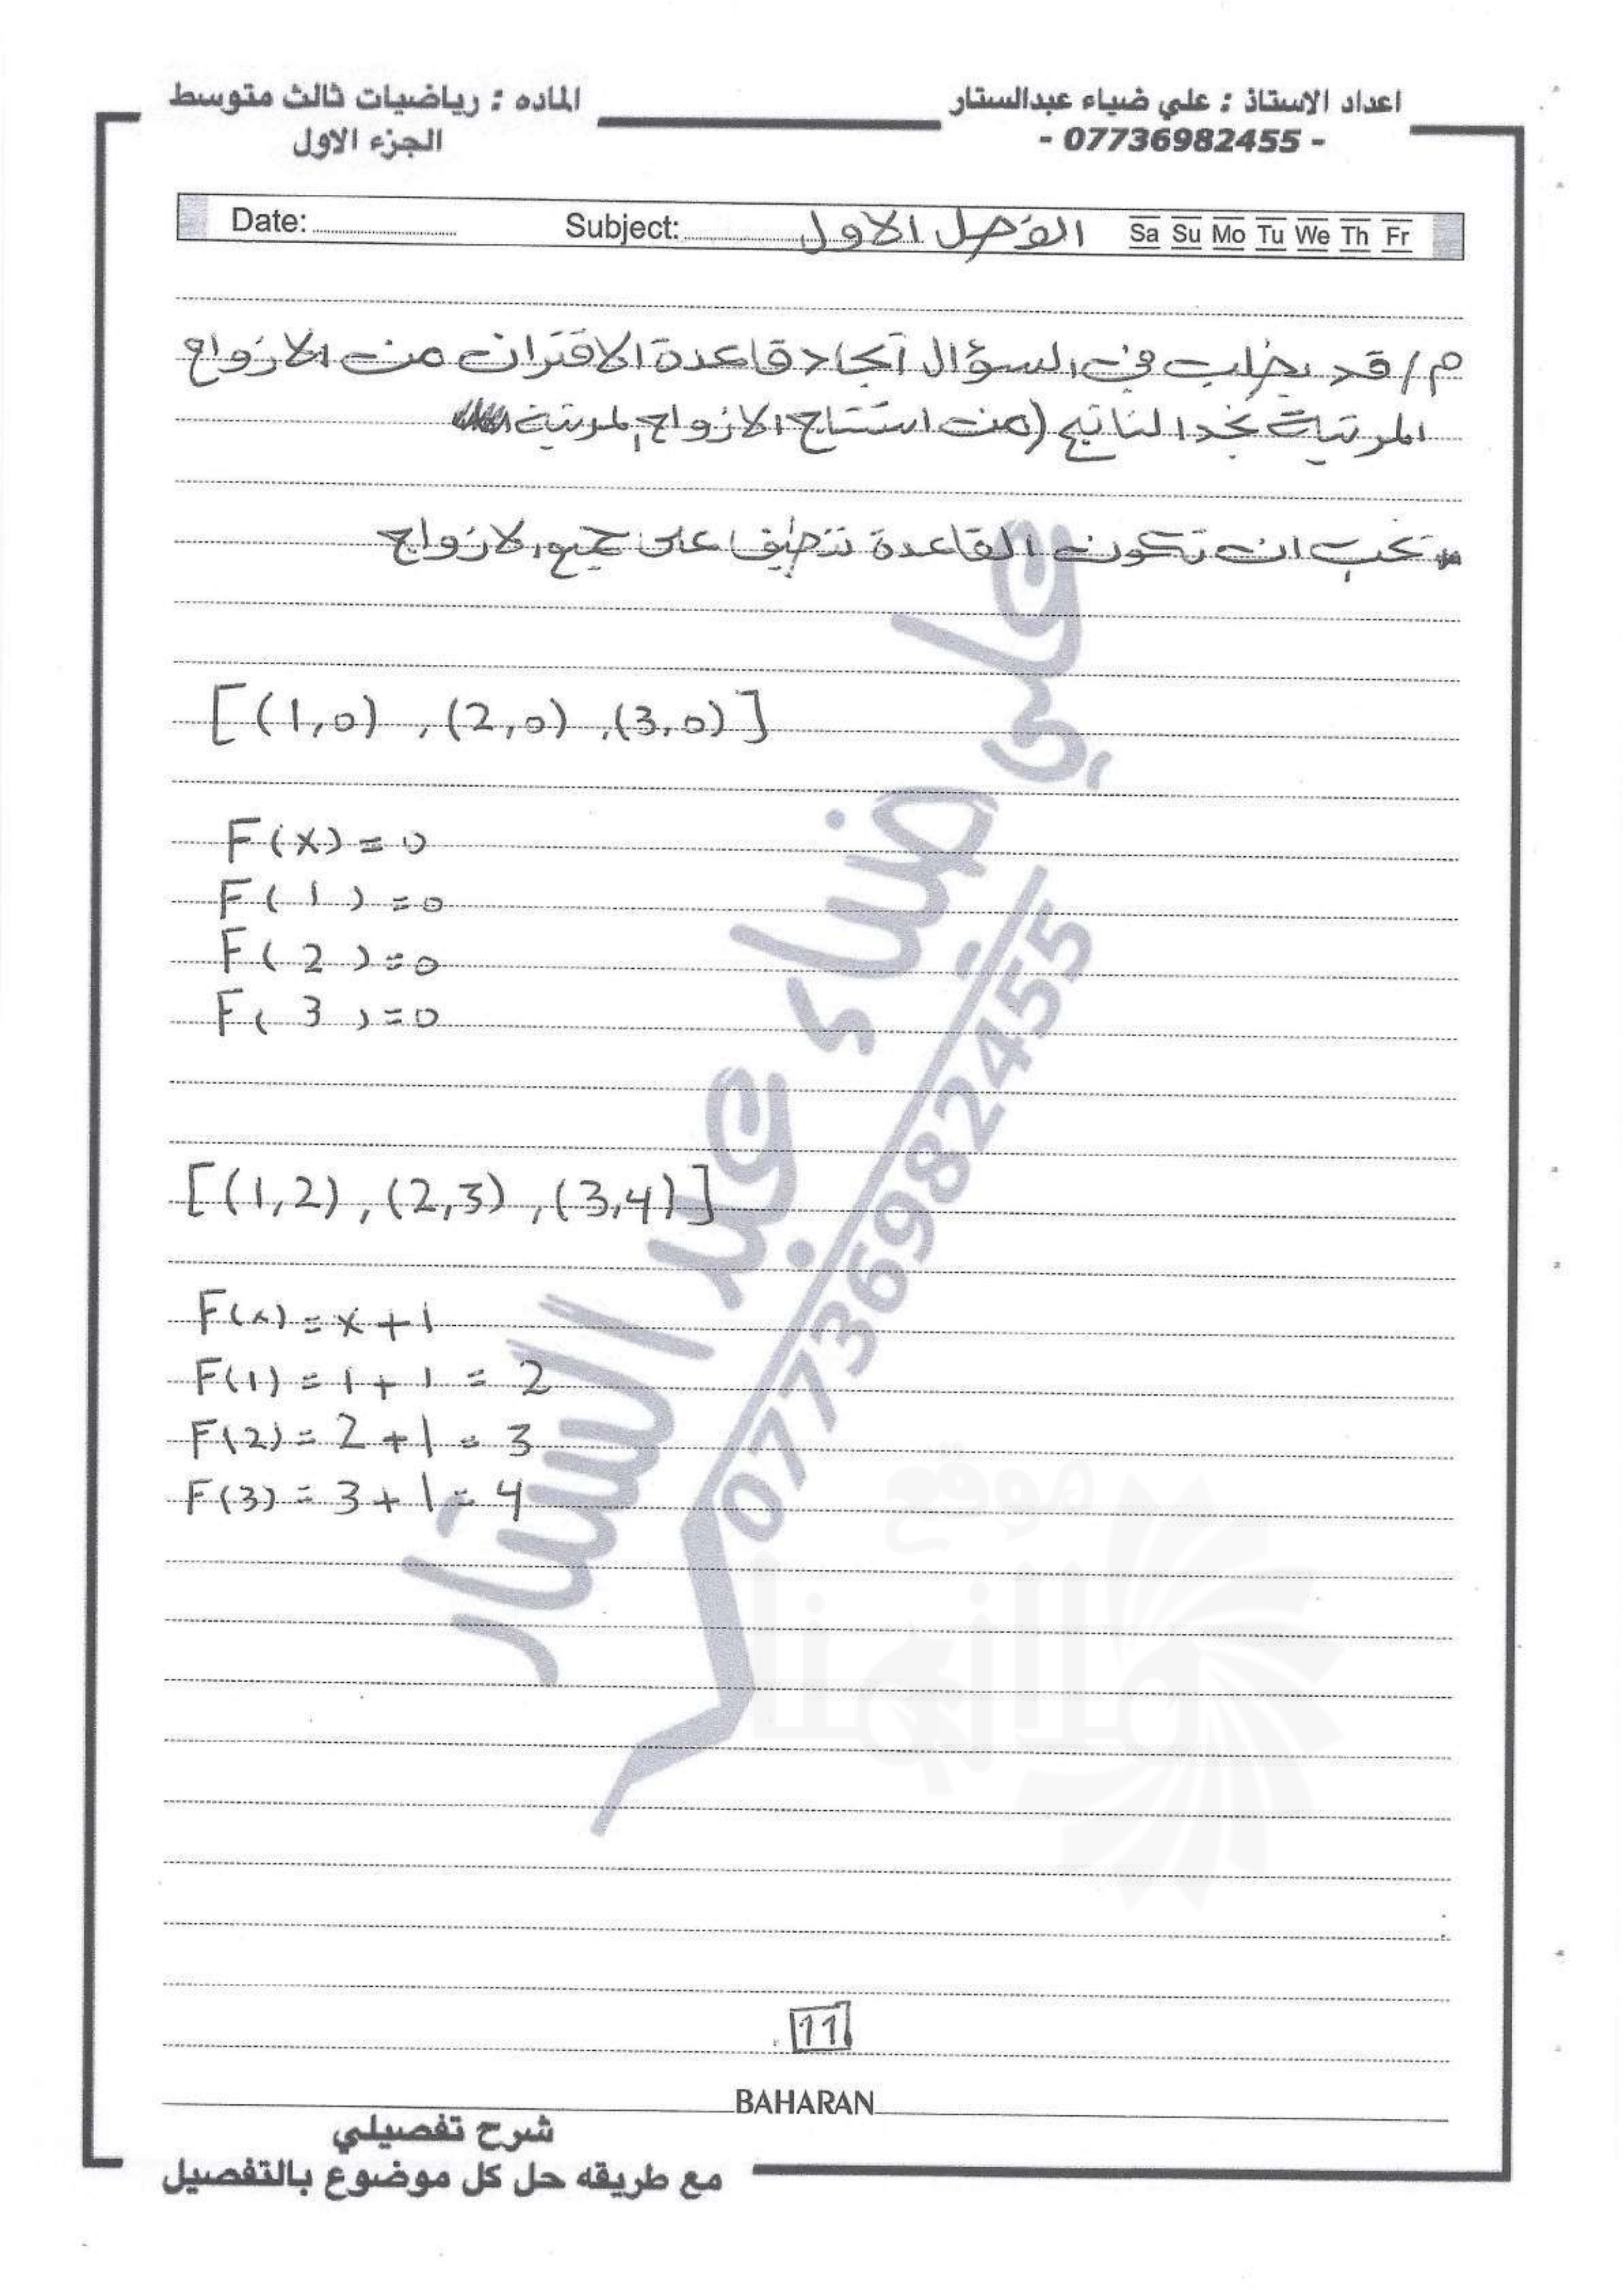 اعداد الاستاذ : علي ضياء عبدالستار
- 07736982455 -
الماده : رياضيات ثالث متوسط
الجزء الاول
Date: Subject: الفصل الاول Sa Su Mo Tu We Th Fr
م/ قد يطلب في السؤال أيجاد قاعدة الاقتران من الازواج
المرتبة نجد الناتج (من استنتاج الازواج المرتبة
يجب ان تكون القاعدة تنطبق على جميع الازواج
[(1,0) , (2,0) , (3,0)]
F(x) = 0
F( 1 ) = 0
F( 2 ) = 0
F( 3 ) = 0
[(1,2) , (2,3) , (3,4)]
F(x) = x + 1
F(1) = 1 + 1 = 2
F(2) = 2 + 1 = 3
F(3) = 3 + 1 = 4
علي ضياء عبد الستار
07736982455
موقع
11
BAHARAN
شرح تفصيلي
مع طريقه حل كل موضوع بالتفصيل